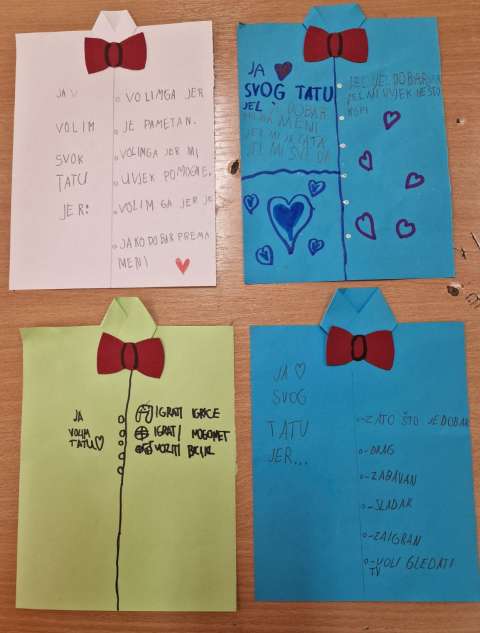 JA V
VOLIM
SVOK
TATU
JER:
VOLIMGA JER
JE PAMETAN.
VOLIMGA JER MI
UVJEK POMOGNE.
VOLIM GA JER JE
JAKO DOBAR PREMA
MENI
JA
SVOG TATU
JEL
DOBAR
MENI
JEL MI SVE DA
JEL JE DOBAR
JEL MI UVJEK NEŠTO
KUPI
JA
VOLIM
TATU
IGRATI IGRICE
IGRATI NOGOMET
VOZITI BICIKL
JA
SVOG
TATU
JER...
-ZATO ŠTO JE DOBAR
-DRAG
-ZABAVAN
-SLADAK
-ZAIGRAN
-VOLI GLEDATI
TV